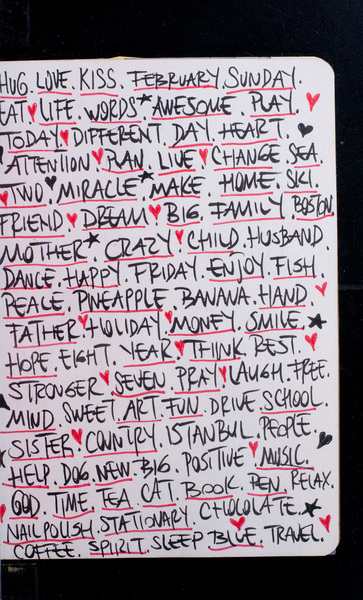 HUG. LOVE. KISS. FEBRUARY. SUNDAY.
EAT♥LIFE. WORDS★AWESOME. PLAY.♥
TODAY♥DIFFERENT. DAY. HEART.♥
ATTENTION♥PLAN. LIVE♥CHANGE. SEA.
♥TWO♥MIRACLE★MAKE. HOME. SKI.
FRIEND♥DREAM♥BIG. FAMILY. BOSTON.
MOTHER★CRAZY♥CHILD. HUSBAND.
DANCE. HAPPY. FRIDAY. ENJOY. FISH.
PEACE. PINEAPPLE. BANANA. HAND.♥
FATHER♥HOLIDAY♥MONEY. SMILE.★
HOPE. EIGHT. YEAR♥THINK. BEST.♥
STRONGER♥SEVEN. PRAY♥LAUGH. FREE.
MIND. SWEET. ART. FUN. DRIVE. SCHOOL.
SISTER♥COUNTRY. ISTANBUL. PEOPLE.♥
HELP. DOG. NEW. BIG. POSITIVE♥MUSIC.
♥GOD. TIME. TEA. CAT. BOOK. PEN. RELAX.
NAILPOLISH. STATIONARY. CHOCOLATE.★
COFFEE. SPIRIT. SLEEP. BLUE. TRAVEL.♥